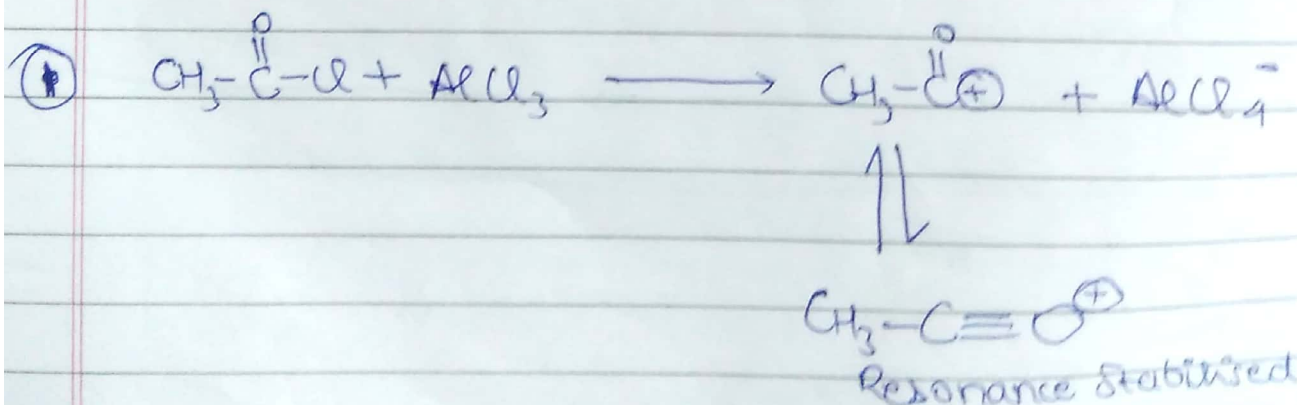 ① CH₃-C(=O)-Cl + AlCl₃ ⟶ CH₃-C(=O)⊕ + AlCl₄⁻
⇅
CH₃-C≡O⊕
Resonance Stabilised